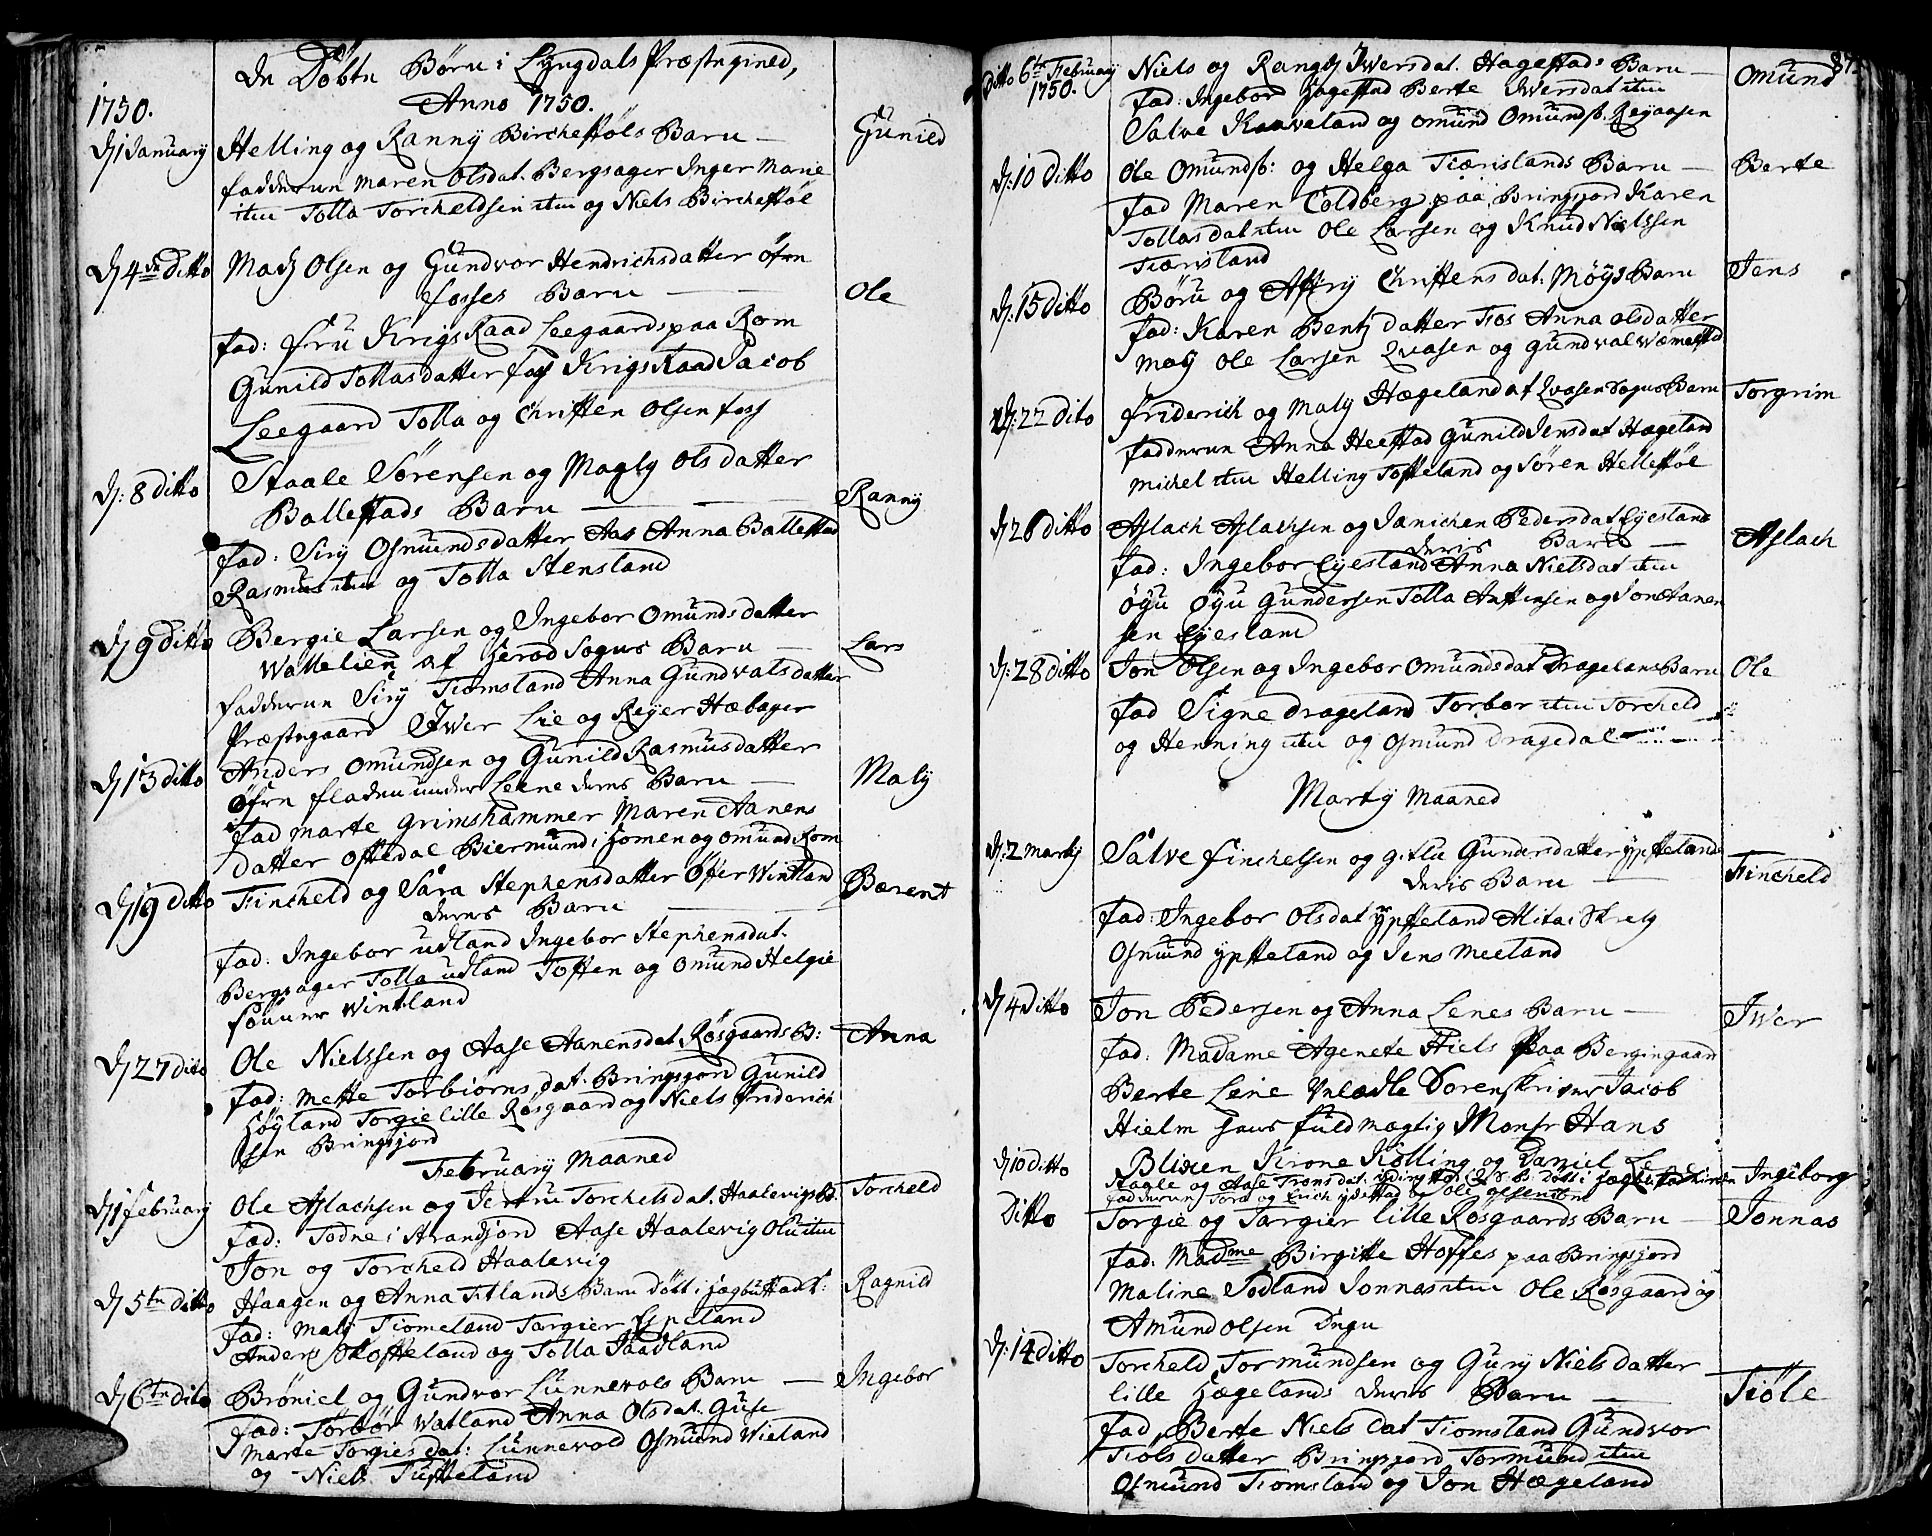 De Døbte Børn i Lyngdals Præstegield,
Anno 1750.
1750.
D 1 January Helling og Ranny Birchestøls Barn — Gunild
fadderne Maren Olsdat. Bergsager Inger Marie
item Tolla Torcheldsen item og Niels Birchestøl
D 4de Ditto Mads Olsen og Gundvor Hendrichsdatter øfre
fosses Barn — Ole
fad: fru Krigs Raad Leegaards paa Rom
Gunild Tollasdatter foss Krigs Raad Jacob
Leegaard Tolla og Christen Olsen foss
D: 8 ditto Staale Sørensen og Magly Olsdatter
Ballestads Barn — Ranny
fad: Siry Osmundsdatter Aas Anna Ballestad
Rasmus item og Tolla Stensland
D 9 Ditto Bergie Larsen og Ingebor Omundsdatter
Wattelien af Herod Sogns Barn — Lars
fadderne Siry Tiomsland Anna Gundvalsdatter
Præstegaard Iwer Lie og Reyer Hæbager
D 13 ditto Anders Omundsen og Gunild Rasmusdatter
Øfre fladen under Leene deres Barn — Maly
fad Marte Grimshammer Maren Aanens
datter Oftedal Biermund i Homen og Omund Rom
D 19 ditto Fincheld og Sara Stephensdatter Øfer Wintland
deres Barn — Bærent
fad: Ingebor Udland Ingebor Stephensdat.
Bergsager Tolla Udland Toften og Omund Helgie
sønner Wintland
D 27 dito Ole Nielssen og Aase Aanensdat. Røsgaards B: Anna
fad: Mette Torbiørns dat. Bringsjord Gunild
Høyland Torgie lille Røsgaard og Niels friderich
sen Bringsjord
February Maaned
D 1 february Ole Aslachsen og Jertru Torchelsdat. Haalevigs B. Torcheld
fad: Todne i Strandfjord Aase Haalevig Ole item
Jon og Torcheld Haalevig
D 5te ditto Haagen og Anna Titlands Barn døbt i Hægbustad K: Ragnild
fad: Maly Tiomeland Targier Espeland
Anders Skofteland og Tolla Vaadland
D 6te dito Brøniel og Gundvor Lunnevols Barn — Ingebor
fad: Torbor Watland Anna Olsdat. Guse
Marte Torgiesdat: Lunnevold Osmund Wieland
og Niels Tufteland
87.
ditto 6te February 1750. Niels og Rangly Iwersdat. Hagestads Barn — Omund
fad: Ingebor Hagestad Berte Iwersdat item
Salve Kaaveland og Omund Omunds. Reyaasen
D: 10 Ditto Ole Omunds: og Helga Tiærislands Barn — Berte
fad Maren Coldberg paa Bringsjord Karen
Tollasdat item Ole Larsen og Knud Nielssen
Tiærisland
D: 15 Ditto Børu og Astry Christensdat. Møys Barn Jens
fad: Karen Bents datter Fos Anna Olsdatter
Møy Ole Larsen Qvasen og Gundval Wæmestad
D: 22 Dito Friderich og Maly Hægeland af Qvasen Sogns Barn Torgrim
fadderne Anna Heestad Gunild Jensdat Hægeland
Michel item Helling Tofteland og Søren Hellestøl
D 26 ditto Aslach Aslachsen og Janichen Pedersdat Eyesland
deres Barn — Aslach
fad: Ingebor Eyesland Anna Nielsdat item
Øyu Øyu Gundersen Tolla Anstensen og Jon Aanen
sen Eyesland
D: 28 ditto Jon Olsen og Ingebor Omundsdat Dragelans Barn Ole
fad Signe Drageland Torbor item Torcheld
og Henning item og Osmund Dragedal
Marty Maaned
D: 2 marty Salve Finchelsen og Gitlu Gundersdatter Ypsteland
deris Barn — Fincheld
fad: Ingebor Olsdat Ypsteland Alita Skrely
Osmund Ypsteland og Jens Meeland
D 4 Ditto Jon Pedersen og Anna Lenes Barn — Iwer
fad: Madame Agenete Hiels Paa Bergingaan
Berte Lene Velædle Sorenskriver Jacob
Hielm Hans fuldmægtig Monsr Hans
Blixen Krone Kølling og Daniel
D 10 ditto Stagle og Aase Tronsdat. døbt i Hægbustad Ingeborg
fadderne Tore og Erich
Ditto Torgie og Targier lille Røsgaards Barn — Jonnas
fad: Madme Birgitte Hoffes paa Bringsjord
Maline Jodland Jonnas item Ole Røsgaard og
Amund Olsen
D: 14 Ditto Torcheld Tormundsen og Gury Nielsdatter
lille Hægelands deres Barn — Tiøle
fad, Berte Nielsdat Tiomsland Gundvor
Tiøls datter Bringsjord Tormund item
Osmund Tiomsland og Jon Hægeland